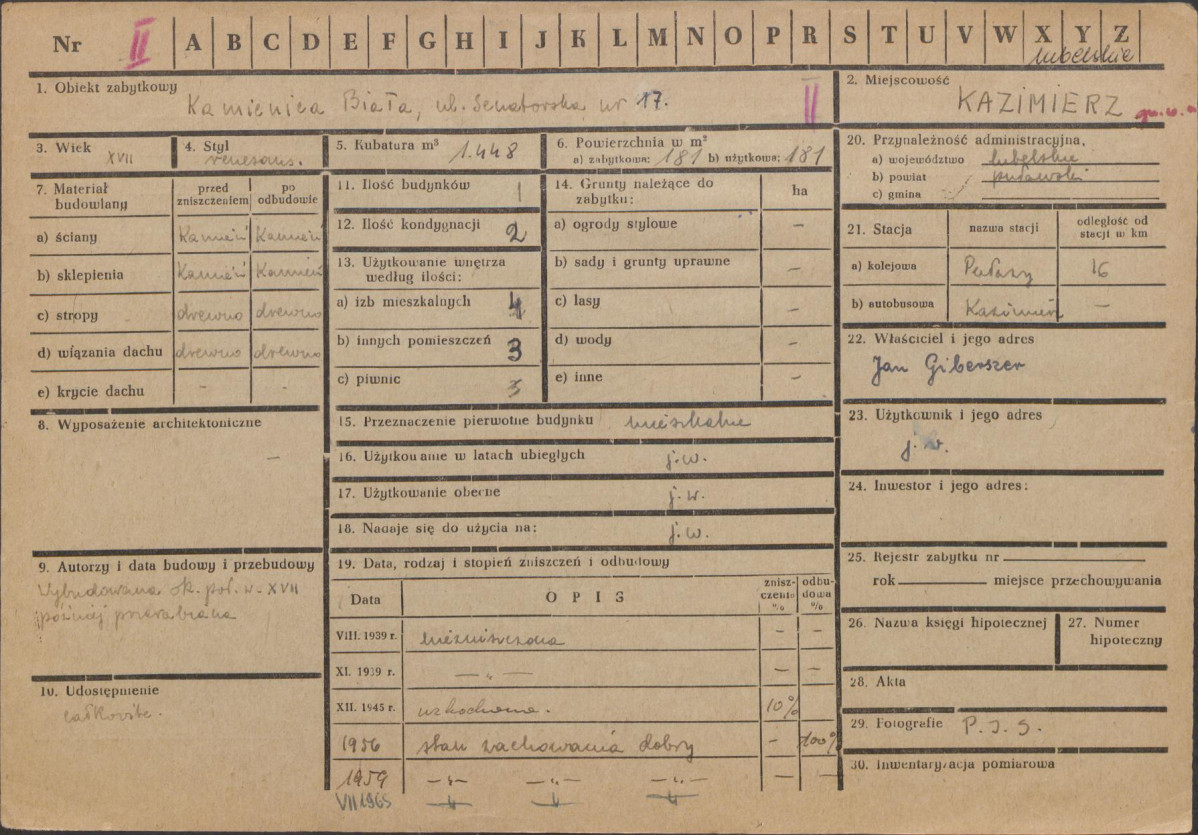 Nr II A B C D E F G H I J K L M N O P R S T U V W X Y Z
lubelskie
1. Obiekt zabytkowy Kamienica Biała, ul. Senatorska nr 17. II
2. Miejscowość KAZIMIERZ
3. Wiek XVII
4. Styl renesans.
5. Kubatura m³ 1.448
6. Powierzchnia w m²
a) zabytkowa: 181 b) użytkowa: 181
7. Materiał budowlany
przed zniszczeniem
po odbudowie
a) ściany Kamień Kamień
b) sklepienia Kamień Kamień
c) stropy drewno drewno
d) wiązania dachu drewno drewno
e) krycie dachu - -
8. Wyposażenie architektoniczne
—
9. Autorzy i data budowy i przebudowy
Wybudowana ok. poł. w. XVII
później przerabiana
10. Udostępnienie
całkowite.
11. Ilość budynków 1
12. Ilość kondygnacji 2
13. Użytkowanie wnętrza
według ilości:
a) izb mieszkalnych 4
b) innych pomieszczeń 3
c) piwnic 3
14. Grunty należące do
zabytku: ha
a) ogrody stylowe -
b) sady i grunty uprawne -
c) lasy -
d) wody -
e) inne -
15. Przeznaczenie pierwotne budynku mieszkalne
16. Użytkowanie w latach ubiegłych j.w.
17. Użytkowanie obecne j.w.
18. Nadaje się do użycia na: j.w.
19. Data, rodzaj i stopień zniszczeń i odbudowy
Data OPIS zniszczenia % odbudowa %
VIII. 1939 r. niezniszczona - -
XI. 1939 r. — „ — - -
XII. 1945 r. uszkodzona. 10%
1956 stan zachowania dobry - 100%
1959 -„- -„- -„- - -
VII 1965 -„- -„- -„-
20. Przynależność administracyjna,
a) województwo lubelskie
b) powiat puławski
c) gmina
21. Stacja
nazwa stacji
odległość od
stacji w km
a) kolejowa Puławy 16
b) autobusowa Kazimierz -
22. Właściciel i jego adres
Jan Giberszer
23. Użytkownik i jego adres
j. w.
24. Inwestor i jego adres:
25. Rejestr zabytku nr
rok miejsce przechowywania
26. Nazwa księgi hipotecznej
27. Numer
hipoteczny
28. Akta
29. Fotografie P.I.S.
30. Inwentaryzacja pomiarowa